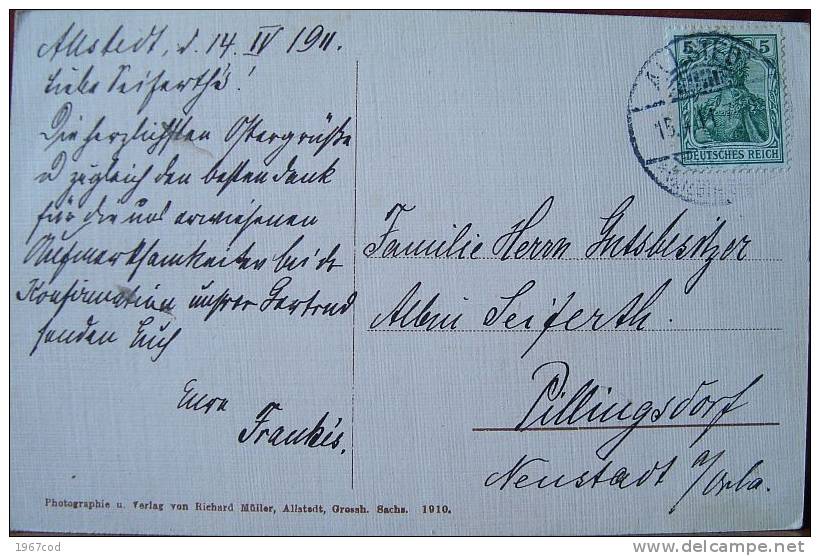 Allstedt, d. 14. IV 1911.
Liebe Seiferth's!
Die herzlichsten Ostergrüße
u zugleich den besten Dank
für die uns erwiesenen
Aufmerksamkeiten bei der
Konfirmation unsrer Gertrud
senden Euch
Eure
Franke's.
Familie Herrn Gutsbesitzer
Albin Seiferth.
Pillingsdorf
Neustadt a/Orla.
5 5
DEUTSCHES REICH
ALLSTEDT
15.4.11
Photographie u. Verlag von Richard Müller, Allstedt, Grossh. Sachs. 1910.
1967cod
http://www.delcampe.net